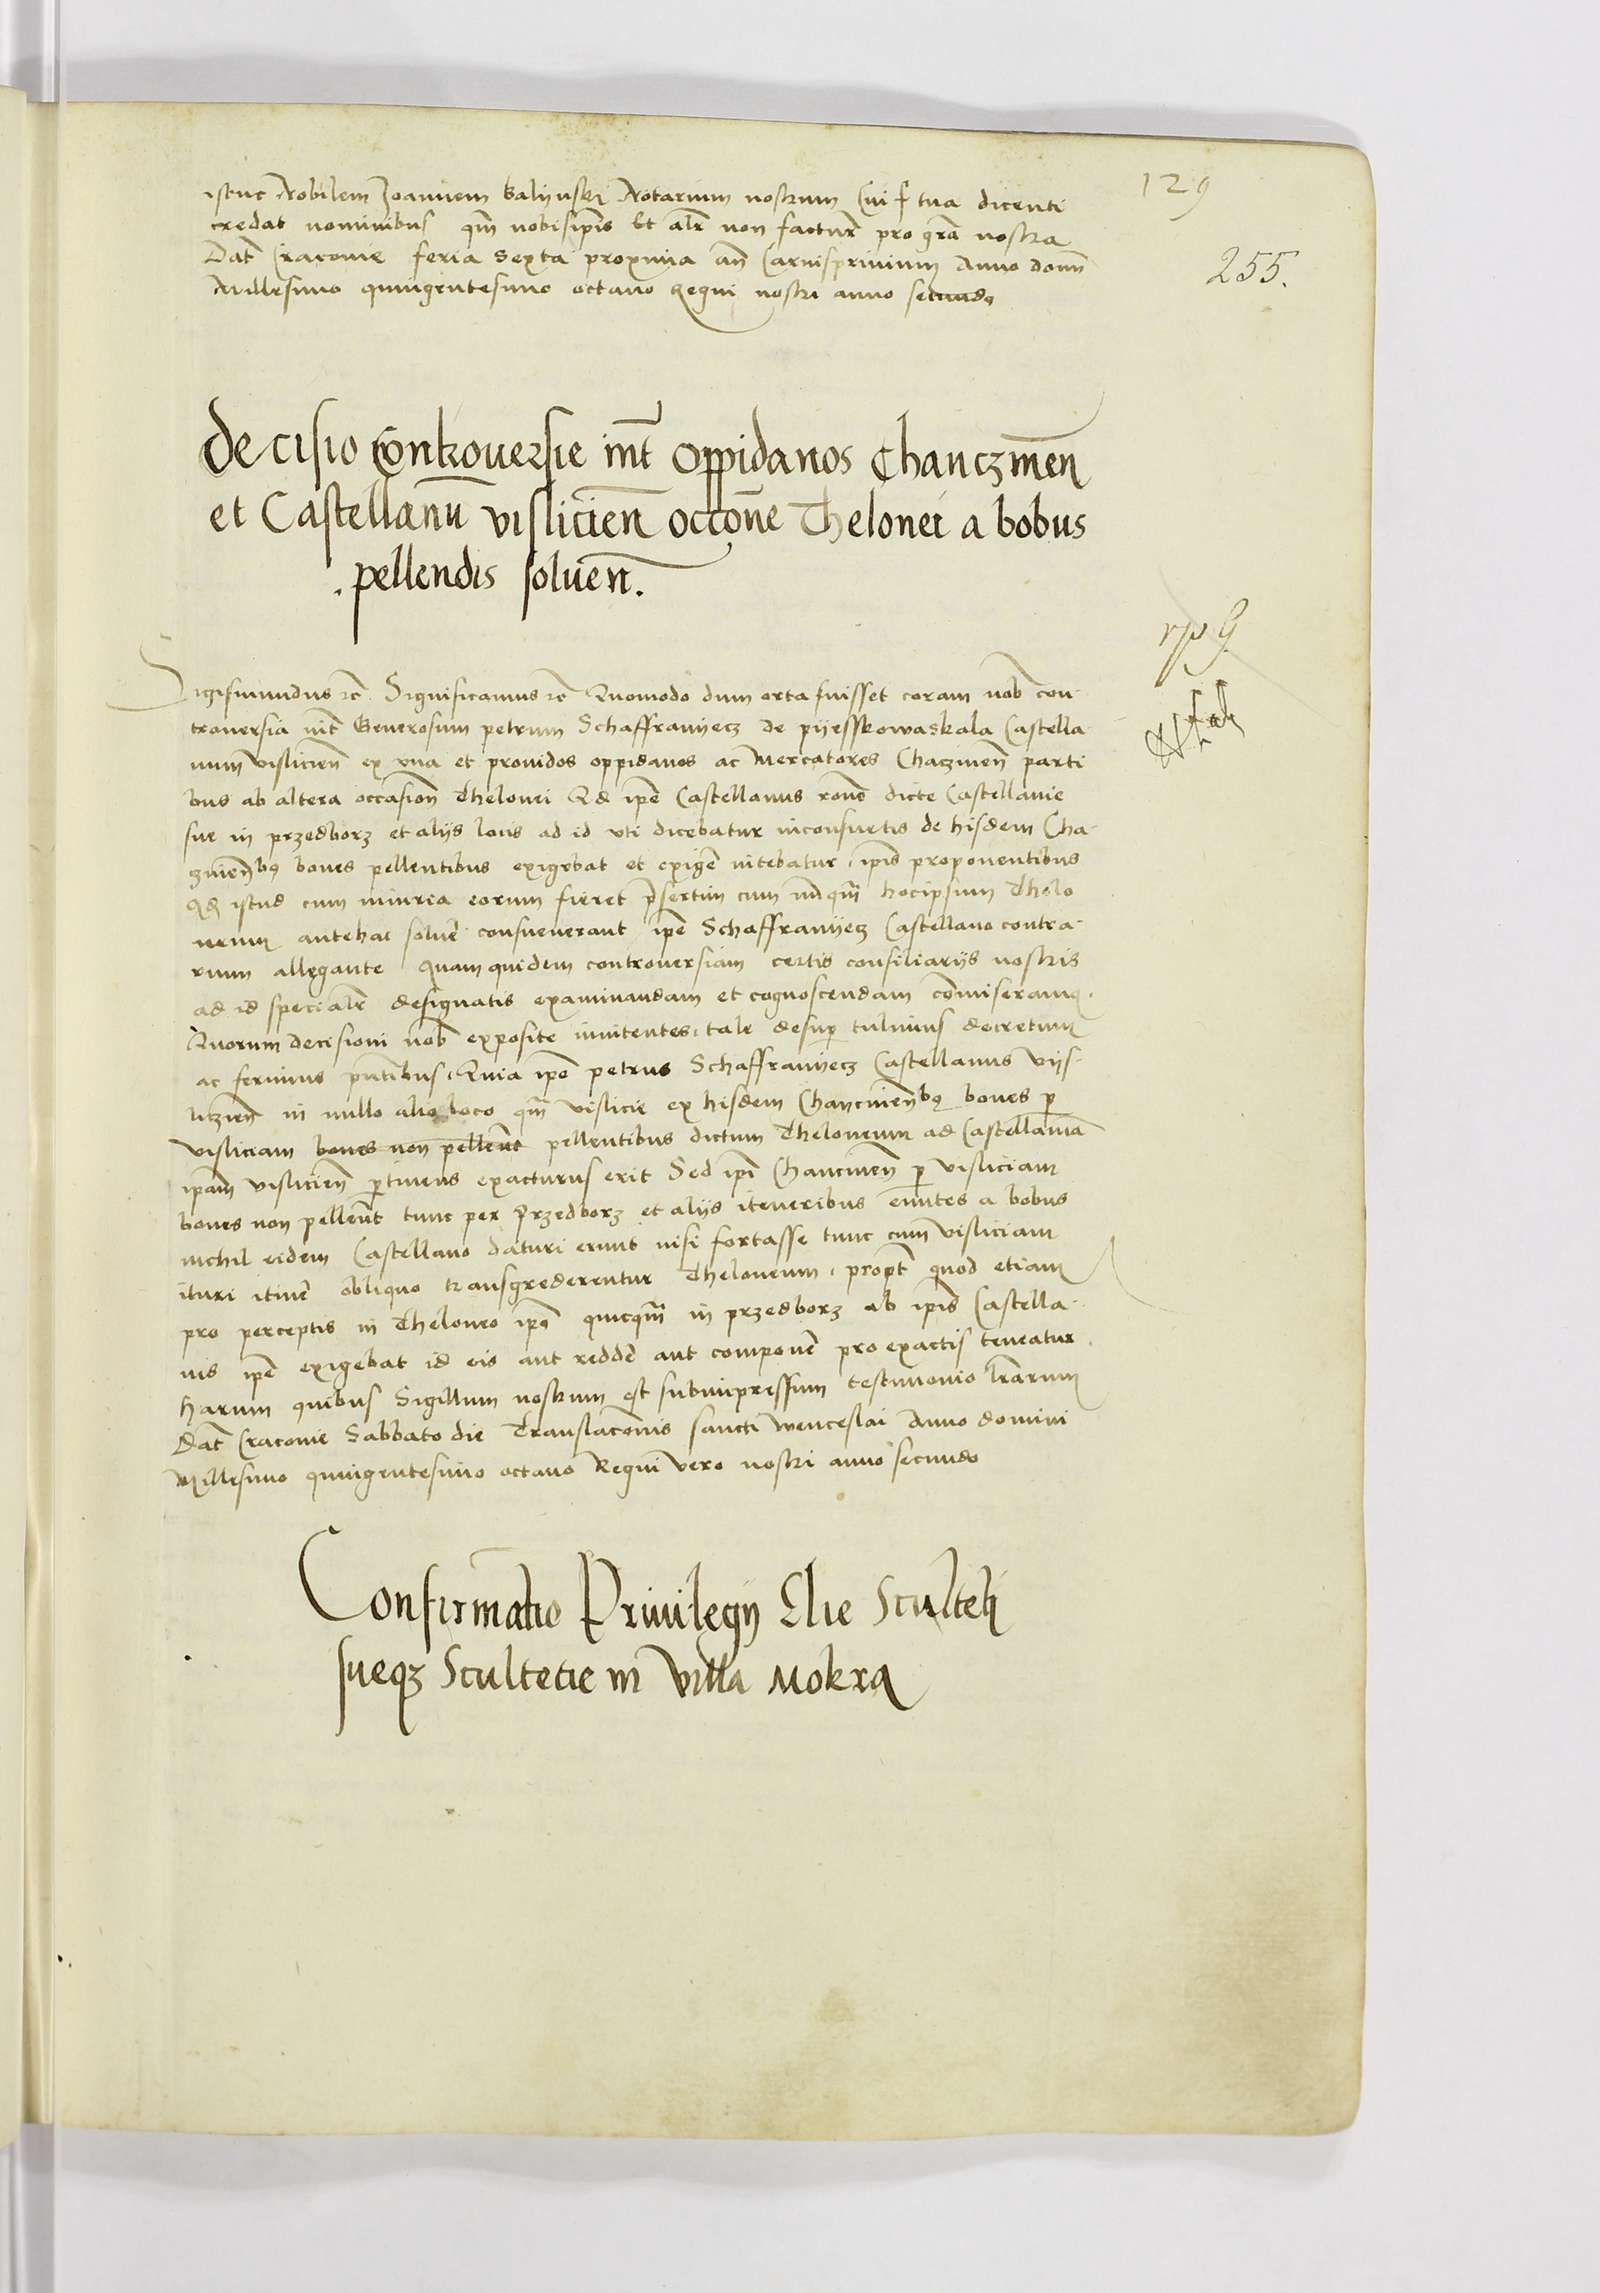 129
255.
istuc Nobilem Joannem Galijnski Notarium nostrum Cui f tua dicenti
credat nominibus qm̄ nobisipīs Et alr̄ non factur̄ pro grā nostra
Dat̄ Cracovie feria Sexta proxima an̄ Carnisprivium Anno domī
Millesimo quingentesimo octavo Regni nostri anno secundo
Decisio Controversie int̄ Oppidanos Chanczinen̄
et Castellanū Vislicien̄ occōne Thelonei a bobus
. pellendis solven̄.
rp 9
Sigismundus rc̄ Significamus rc̄ Quomodo dum orta fuisset coram nob̄ con-
troversia int̄ Generosum petrum Schaffranyecz de pyesskowaskala Castella
num vislicien̄ ex una et providos oppidanos ac Mercatores Chaczinen̄ parti
bus ab altera occasion̄ Thelonei Qd ipē Castellanus rōne dicte Castellanie
sue in przedborz et alijs locis ad id uti dicebatur inconsuetis de hisdem Cha-
czinen̄bꝫ boves pellentibus exigebat et exiger̄ nitebatur, ipīs proponentibus
Qd istud cum iniuria eorum fieret p̄sertim cum nūqm̄ hocipsum Thelo
neum antehac solver̄ consueverant ipē Schaffranyecz Castellano contra-
rium allegante Quam quidem controversiam certis consiliarijs nostris
ad id specialr̄ designatis examinandam et cognoscendam com̄iseramꝫ.
Quorum decisioni nob̄ exposite innitentes, tale desup̄ tulimus decretum
ac ferimus pn̄tibus, Quia ipē petrus Schaffranyecz Castellanus vijs-
liczien̄ in nullo alio loco qm̄ vislicie ex hisdem Chancinen̄bꝫ boves p̄
visliciam boves non pellen̄t pellentibus dictum Theloneum ad Castellaniā
ipam̄ vislicien̄ p̄tinens exacturus erit Sed ipī Chancinen̄ p̄ visliciam
boves non pellen̄t tunc per Przedborz et alijs iteneribus eun̄tes a bobus
nichil eidem Castellano daturi erunt nisi fortasse tunc cum visliciam
ituri itiner̄ obliquo transgrederentur Theloneum, propt̄ quod etiam
pro perceptis in Theloneo ipō quicqm̄ in przedborz ab ipīs Castella-
nis ipē exigebat id eis aut redder̄ aut componer̄ pro exactis teneatur.
harum quibus Sigillum nostrum est subimpressum testimonio lr̄arum
Dat̄ Cracovie Sabbato die Translacōnis sancti wenceslai Anno domini
Millesimo quingentesimo octavo Regni vero nostri anno secundo
Confirmatio Privilegij Elie Sculteti
sueqꝫ Scultetie in Villa Mokra